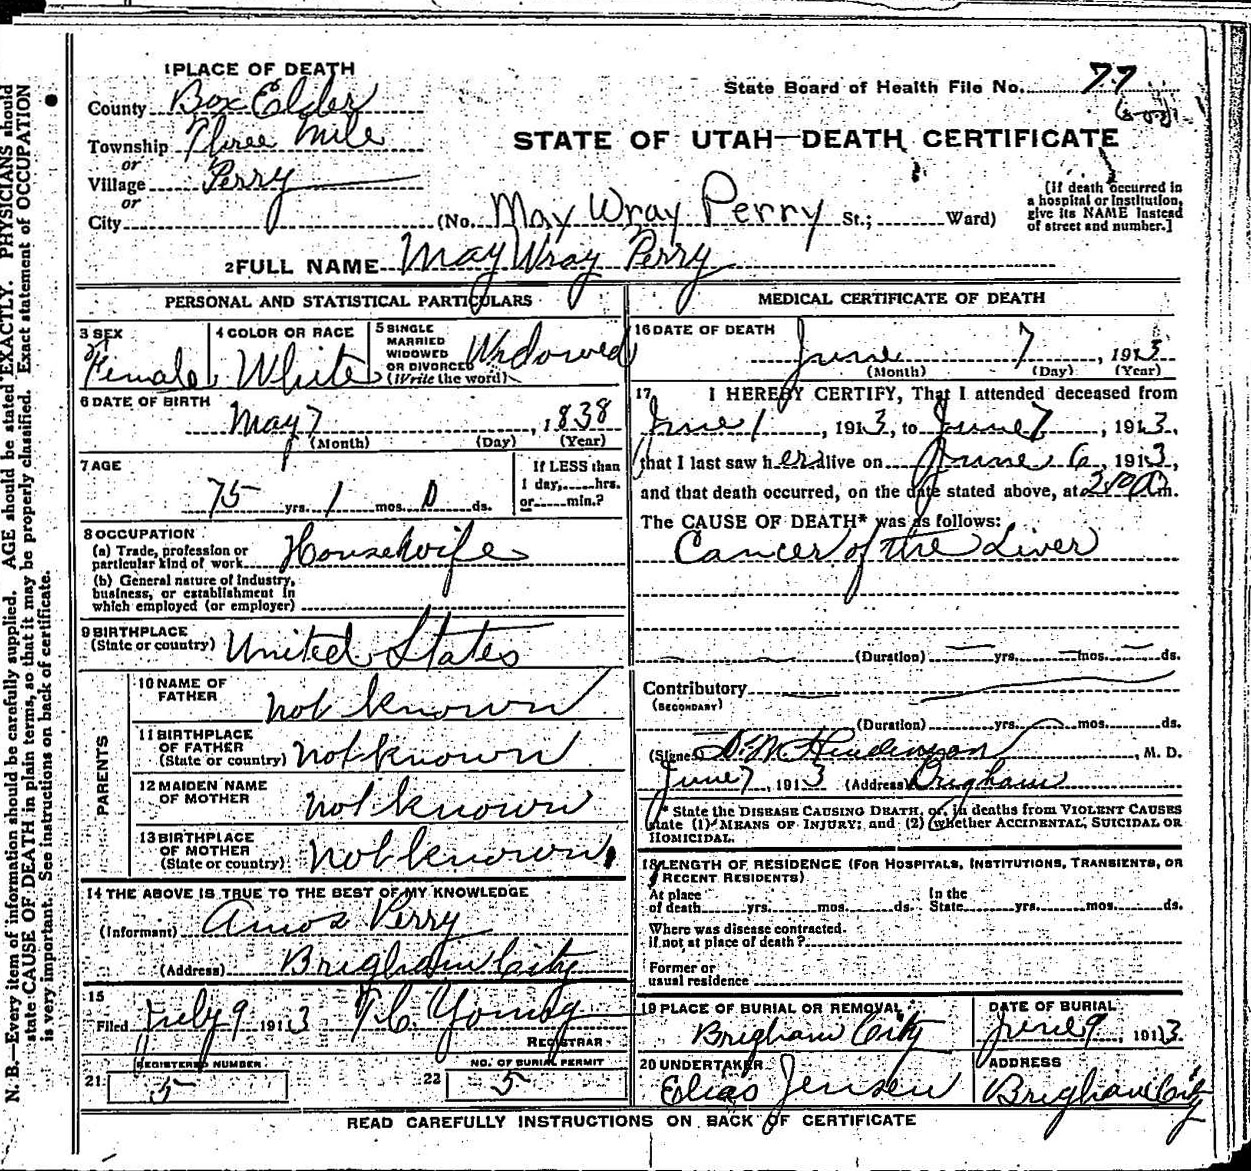 1 PLACE OF DEATH
County Box Elder
State Board of Health File No. 77
Township Three Mile
or
Village Perry
or
City
STATE OF UTAH—DEATH CERTIFICATE
(No. May Wray Perry St.; Ward)
[If death occurred in
a hospital or institution,
give its NAME instead
of street and number.]
2 FULL NAME May Wray Perry
PERSONAL AND STATISTICAL PARTICULARS
3 SEX
Female
4 COLOR OR RACE
White
5 SINGLE
MARRIED
WIDOWED
OR DIVORCED
(Write the word)
Widowed
6 DATE OF BIRTH
May 7, 1838
(Month) (Day) (Year)
7 AGE
75 yrs. 1 mos. 0 ds.
If LESS than
1 day, hrs.
or min.?
8 OCCUPATION
(a) Trade, profession or
particular kind of work Housewife
(b) General nature of industry,
business, or establishment in
which employed (or employer)
9 BIRTHPLACE
(State or country) United States
PARENTS
10 NAME OF
FATHER not known
11 BIRTHPLACE
OF FATHER
(State or country) not known
12 MAIDEN NAME
OF MOTHER not known
13 BIRTHPLACE
OF MOTHER
(State or country) not known
14 THE ABOVE IS TRUE TO THE BEST OF MY KNOWLEDGE
(Informant) Amos Perry
(Address) Brigham City
15
Filed July 9 1913 T. C. Young
REGISTRAR
REGISTERED NUMBER
21 5
NO. OF BURIAL PERMIT
22 5
MEDICAL CERTIFICATE OF DEATH
16 DATE OF DEATH
June 7, 1913
(Month) (Day) (Year)
17 I HEREBY CERTIFY, That I attended deceased from
June 1, 1913, to June 7, 1913,
that I last saw her alive on June 6, 1913,
and that death occurred, on the date stated above, at m.
The CAUSE OF DEATH* was as follows:
Cancer of the Liver
(Duration) yrs. mos. ds.
Contributory
(SECONDARY)
(Duration) yrs. mos. ds.
(Signed) M. D.
June 7, 1913 (Address) Brigham
* State the DISEASE CAUSING DEATH, or, in deaths from VIOLENT CAUSES
state (1) MEANS OF INJURY; and (2) whether ACCIDENTAL, SUICIDAL OR
HOMICIDAL.
18 LENGTH OF RESIDENCE (FOR HOSPITALS, INSTITUTIONS, TRANSIENTS, OR
RECENT RESIDENTS)
At place
of death yrs. mos. ds.
In the
State yrs. mos. ds.
Where was disease contracted
if not at place of death?
Former or
usual residence
19 PLACE OF BURIAL OR REMOVAL
Brigham City
DATE OF BURIAL
June 9, 1913
20 UNDERTAKER
Elias Jensen
ADDRESS
Brigham City
READ CAREFULLY INSTRUCTIONS ON BACK OF CERTIFICATE
N. B.—Every item of information should be carefully supplied. AGE should be stated EXACTLY. PHYSICIANS should
state CAUSE OF DEATH in plain terms, so that it may be properly classified. Exact statement of OCCUPATION
is very important. See instructions on back of certificate.